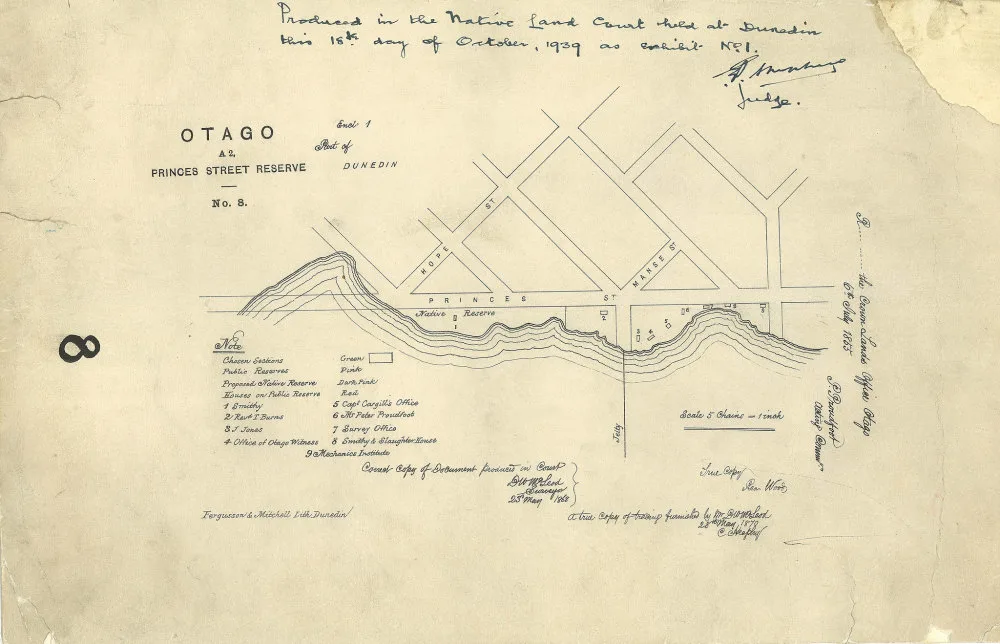 Produced in the Native Land Court held at Dunedin
this 18th day of October, 1939 as exhibit No 1.
Judge.
OTAGO
A 2.
PRINCES STREET RESERVE
No. 8.
Encl 1
Part of
DUNEDIN
HOPE ST
MANSE ST
PRINCES ST
Native Reserve
1
2
3
4
5
6
7
8
8
Note
Chosen Sections Green
Public Reserves Pink
Proposed Native Reserve Dark Pink
Houses on Public Reserve Red
1 Smithy
2 Revd T. Burns
3 J Jones
4 Office of Otago Witness
5 Capt Cargill's Office
6 Mr Peter Proudfoot
7 Survey Office
8 Smithy & Slaughter House
9 Mechanics Institute
Jetty
Scale 5 Chains = 1 inch
the Crown Lands Office Otago
6th July 1865
P. Proudfoot
Correct Copy of Document produced in Court
D W McLeod
Surveyor
25th May 1868
True Copy
A true Copy of tracing furnished by Mr D W McLeod
May 1870
C Heaphy
Fergusson & Mitchell Lith. Dunedin